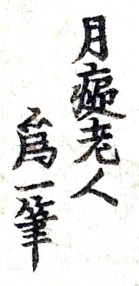 月癡老人
爲一筆